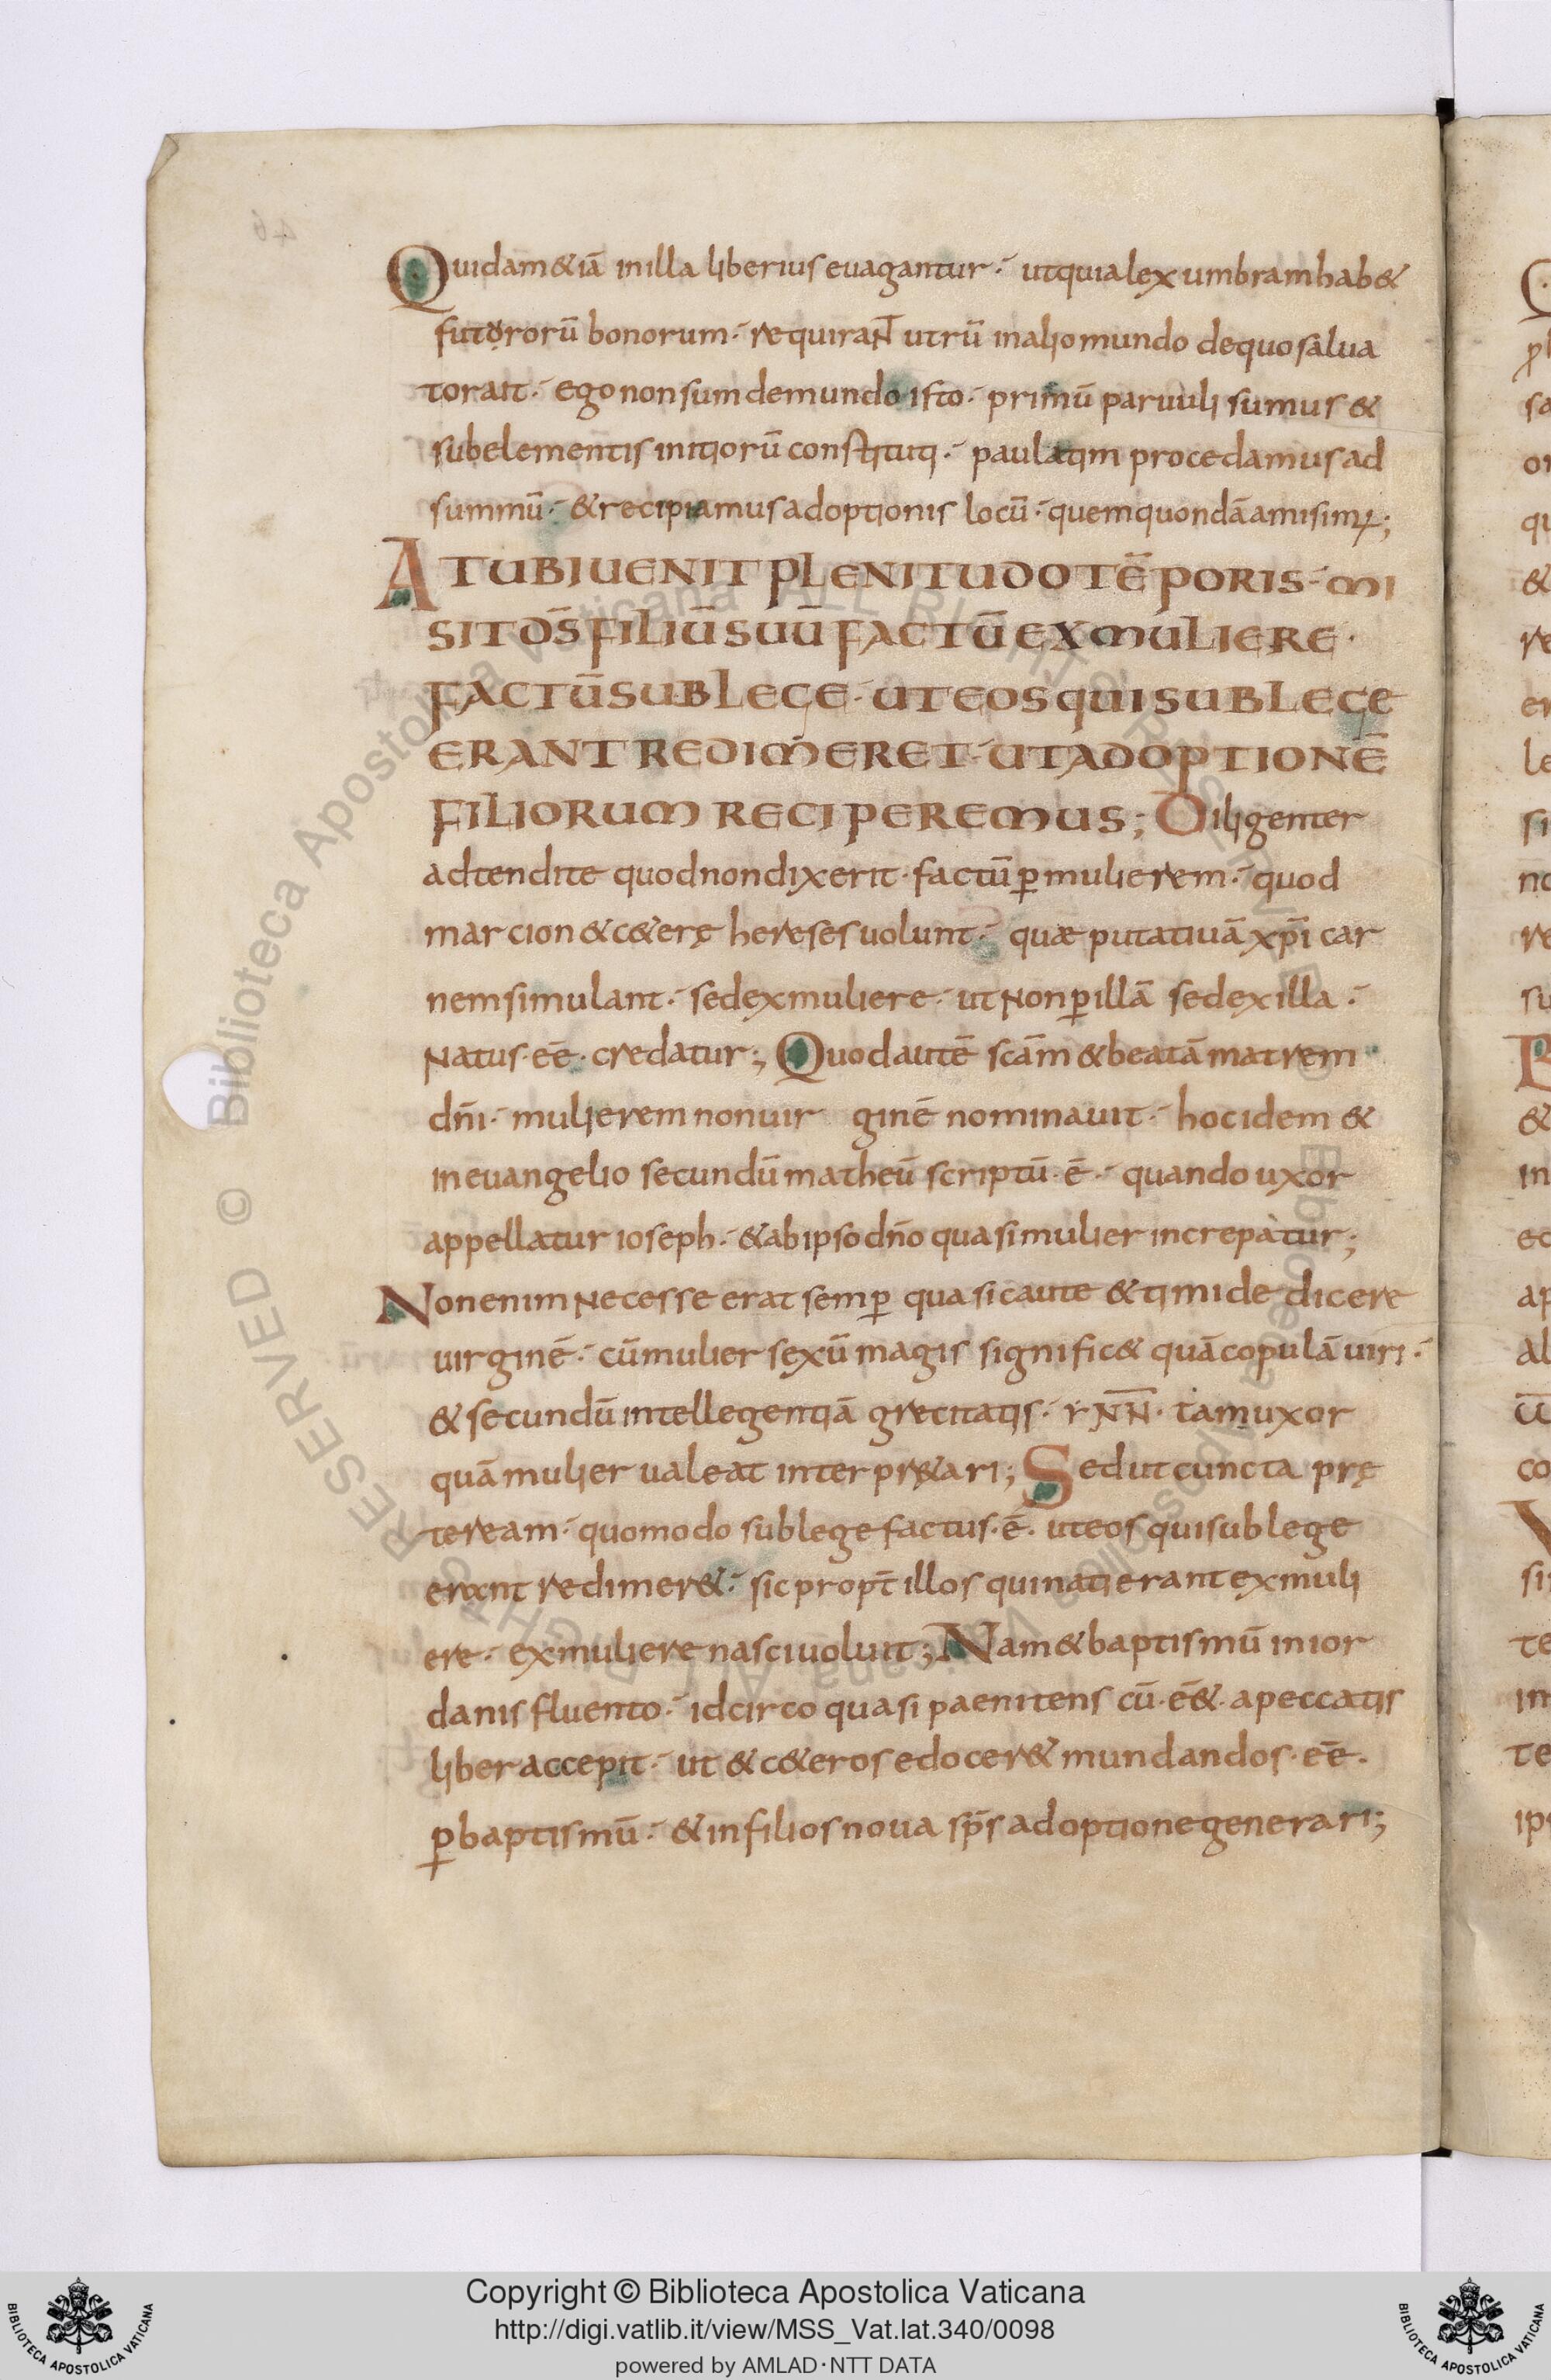 Quidam &iā in illa liberius euagantur· ut quia lex umbram hab&
futororū bonorum· requiraNT utrū in alio mundo de quo salua
tor ait· ego non sum de mundo isto· primū paruuli sumus &
sub elementis initiorū constituti· paulatim procedamus ad
summū· & recipiamus adoptionis locū· quem quondā amisim;
AT UBI UENIT PLENITUDO TĒPORIS· MI
SIT DS̄ FILIŪ SUŪ FACTŪ EX MULIERE·
FACTŪ SUB LEGE· UT EOS QUI SUB LEGE
ERANT REDIMERET· UT ADOPTIONĒ
FILIORUM RECIPEREMUS; Diligenter
adtendite quod non dixerit· factū ꝑ mulierem· quod
marcion & c&erę hereses uolunt· quæ putatiuā xp̄i car
nem simulant· sed ex muliere· ut non ꝑ illā sed ex illa·
Natus· eē· credatur; Quod autē scām & beatā matrem
dn̄i· mulierem non uir ginē nominauit· hoc idem &
in euangelio secundū matheū scriptū· ē· quando uxor
appellatur ioseph· & ab ipso dn̄o quasi mulier increpatur;
Non enim necesse erat semꝑ quasi caute & timide dicere
uirginē· cū mulier sexū magis signific& quā copulā uiri·
& secundū intellegentiā grecitatis· rN̄N̄· tam uxor
quā mulier ualeat interpr&ari; Sed ut cuncta prę
teream· quomodo sub lege factus· ē· ut eos qui sub lege
erant redimer&· sic propt̄ illos qui nati erant ex muli
ere· ex muliere nasci uoluit; Nam & baptismū in ior
danis fluento· idcirco quasi paenitens cū· eē&· a peccatis
liber accepit· ut & c&eros edocer& mundandos· eē·
ꝑ baptismū· & in filios noua sp̄s adoptione generari;
Copyright © Biblioteca Apostolica Vaticana
http://digi.vatlib.it/view/MSS_Vat.lat.340/0098
powered by AMLAD·NTT DATA